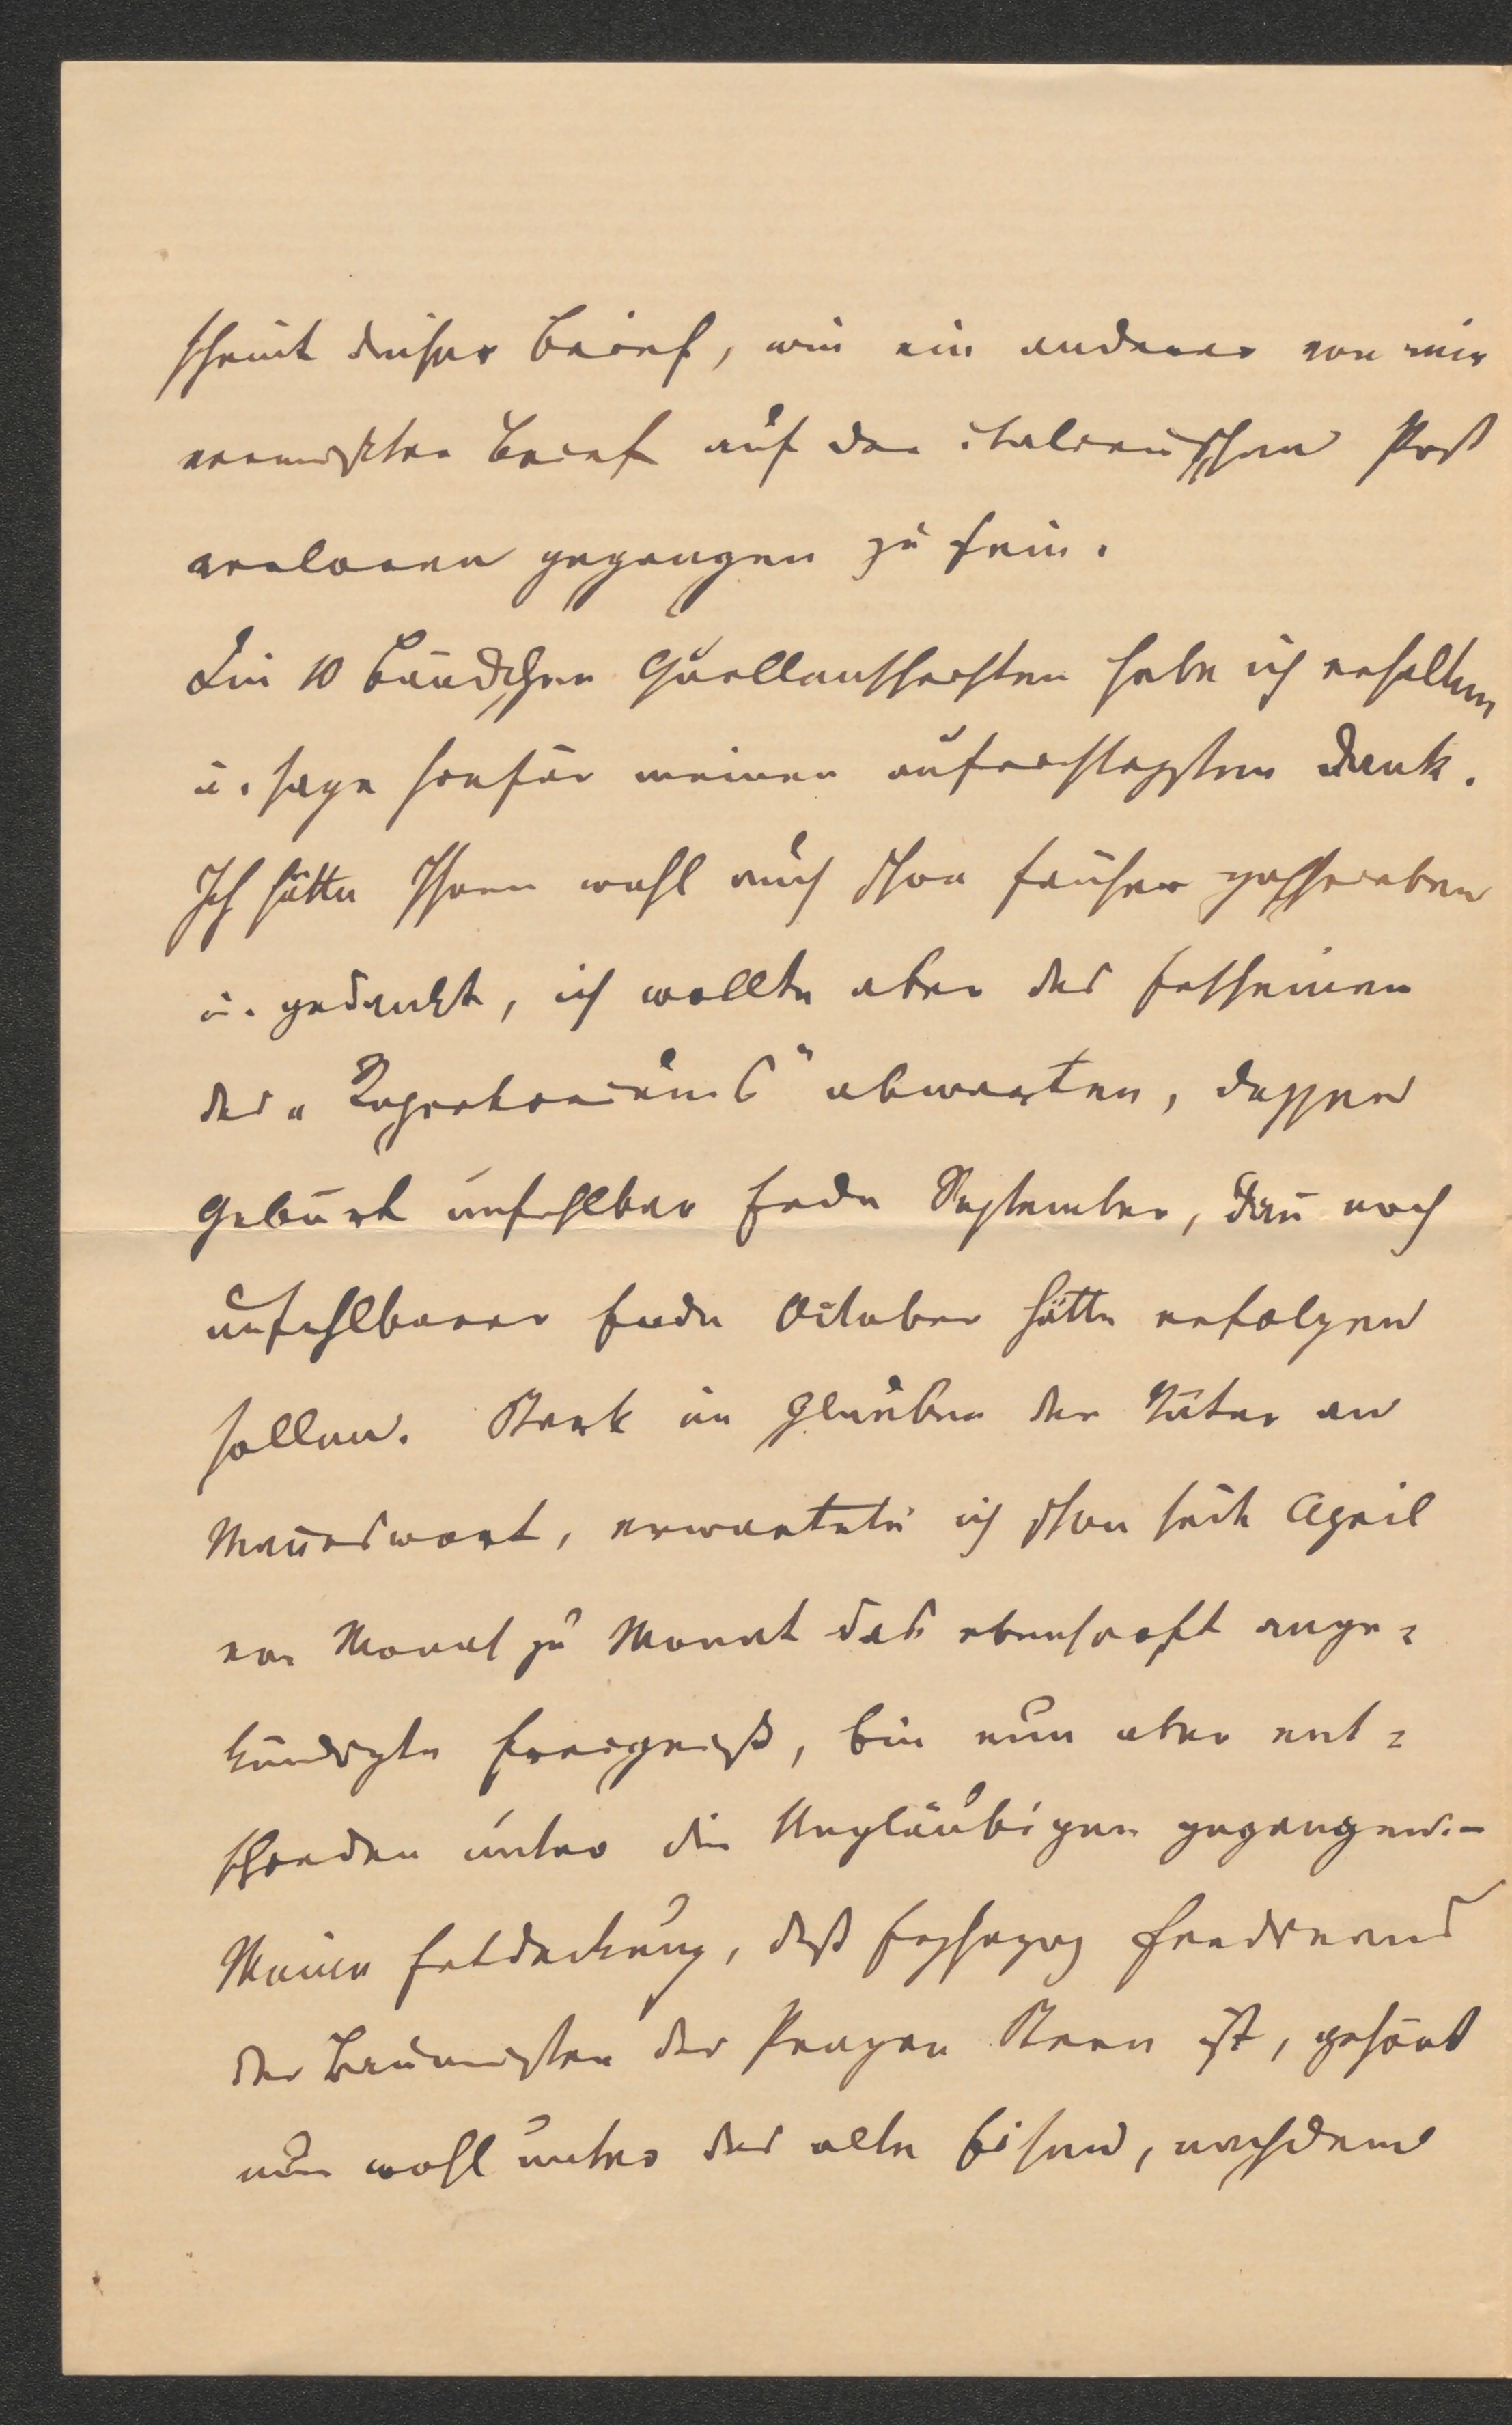 scheint dieser Brief, wie ein anderer von mir
vermißter Brief auf der italienischen Post
verloren gegangen zu sein.
Die 10 Bändchen Quellenschriften habe ich erhalten
u. sage hiefür meinen aufrichtigsten Dank.
Ich hätte Ihnen wohl auch schon früher geschrieben
u. gedankt, ich wollte aber das Erscheinen
des „Repertoriums“ abwarten, dessen
Geburt unfehlbar Ende September, dan̄ noch
unfehlbarer Ende October hätte erfolgen
sollen. Stark im Glauben der Väter an
Man̄eswort, erwartete ich schon seit April
von Monat zu Monat das ebensooft ange-
kündigte Ereigniß, bin nun aber ent-
schieden unter die Ungläubigen gegangen. –
Meine Entdeckung, daß Erzherzog Ferdinand
der Baumeister des Prager Stern ist, gehört
nun wohl unter das alte Eisen, nachdem